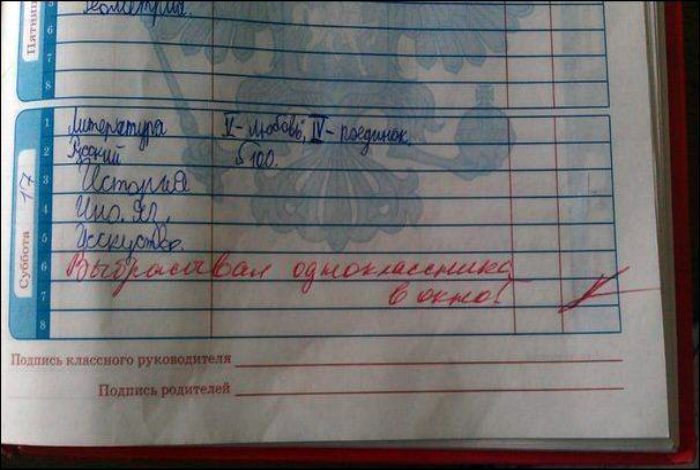 Пятниц
5 Геометрия.
6
7
8
Суббота 17
1 Литература V-любовь, IV-поединок.
2 Русский §100.
3 История
4 Ино. яз.
5 Исскуство.
6 Выбрасывал одноклассника
7 в окно!
8
Подпись классного руководителя
Подпись родителей